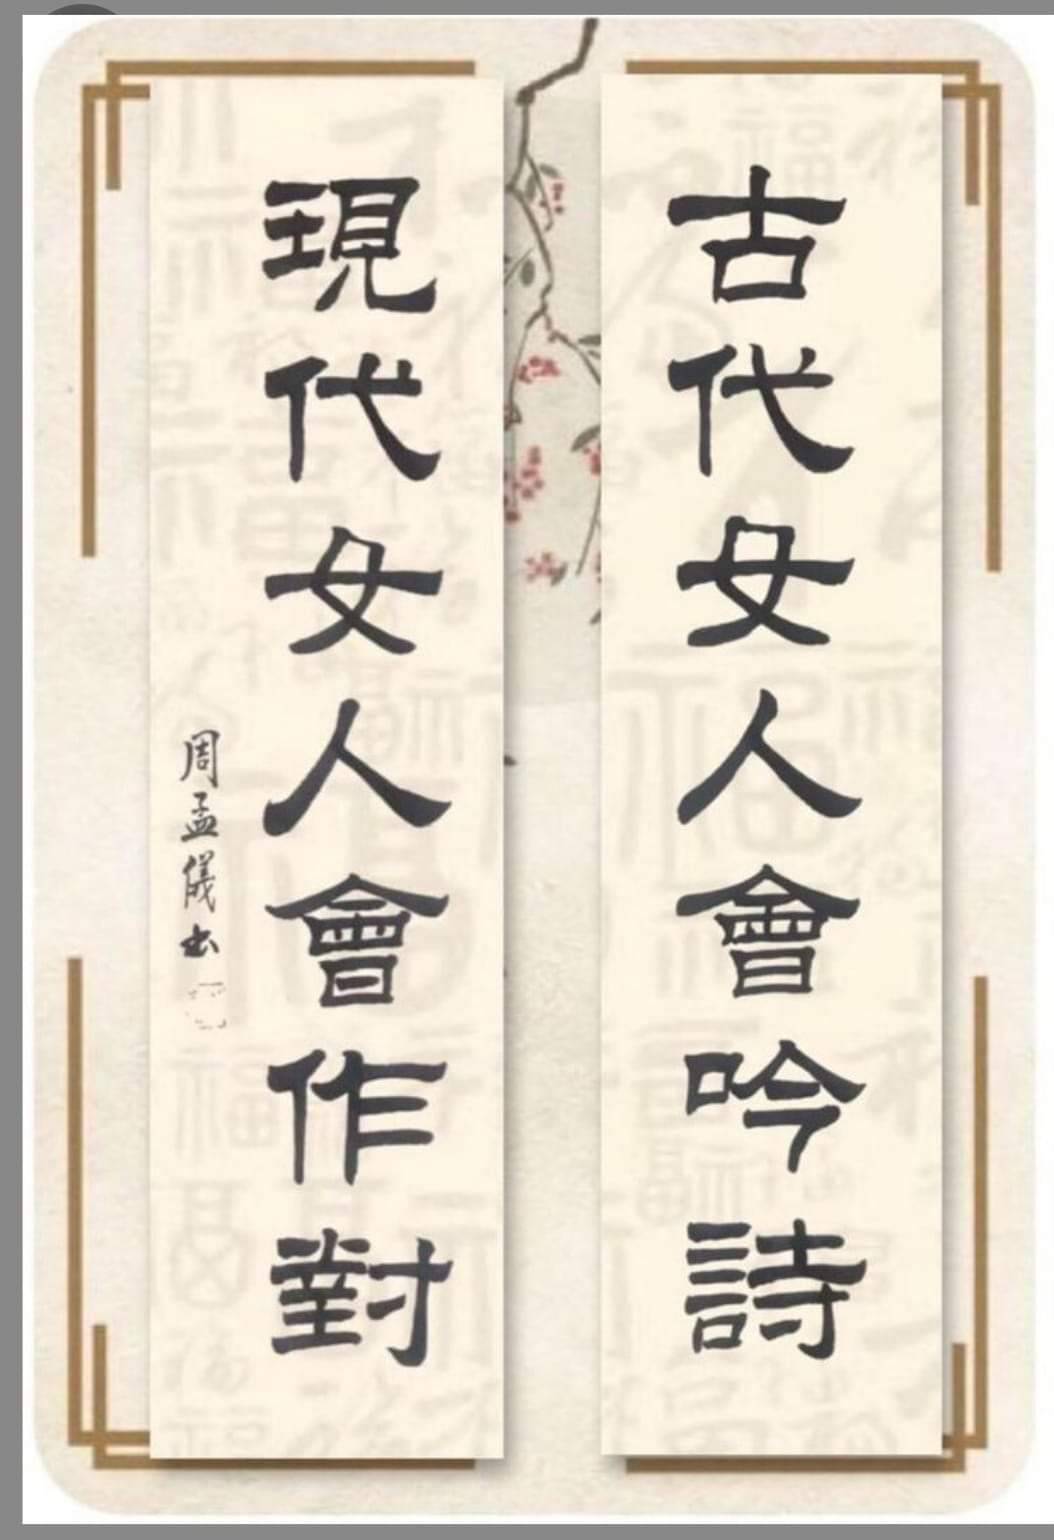 古代女人會吟詩
現代女人會作對
周孟儀書